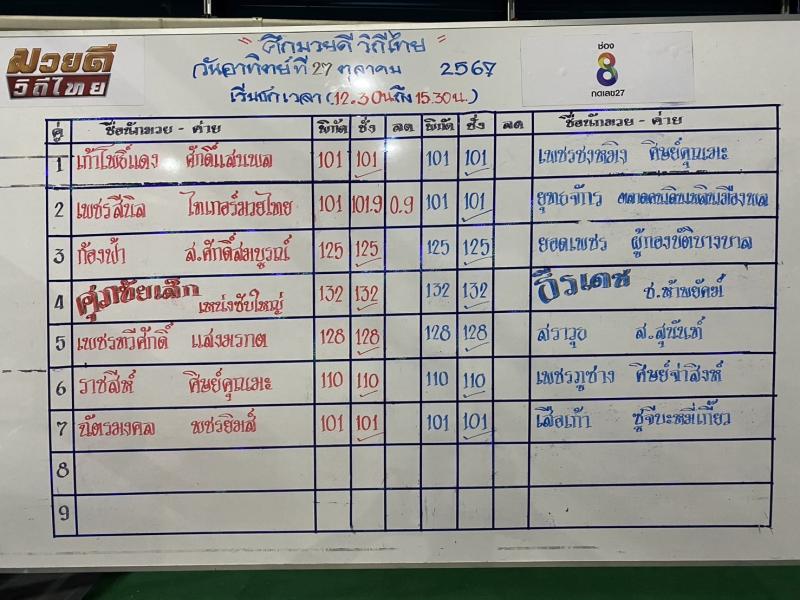 มวยดี
วิถีไทย
" ศึกมวยดี วิถีไทย "
วันอาทิตย์ที่ 27 ตุลาคม 2567
เริ่มชกเวลา (12.30น ถึง 15.30 น.)
ช่อง
8
กดเลข27
คู่ ชื่อนักมวย - ค่าย พิกัด ชั่ง ลด พิกัด ชั่ง ลด ชื่อนักมวย - ค่าย
1 เก้าโพธิ์แดง ศักดิ์แสนพล 101 101 101 101 เพชรชงหมิง ศิษย์คุณเมะ
2 เพชรสีนิล ไทเกอร์มวยไทย 101 101.9 0.9 101 101 ยุทธจักร
3 ก้องฟ้า ส.ศักดิ์สมบูรณ์ 125 125 125 125 ยอดเพชร ผู้กองบัติบางบาล
4 ศุภชัยเล็ก เหน่งซับใหญ่ 132 132 132 132 ธีรเดช ช.ห้าพยัคฆ์
5 เพชรทวีศักดิ์ แสงมรกต 128 128 128 128 สราวุธ ส.สุนันท์
6 ราชสีห์ ศิษย์คุณเมะ 110 110 110 110 เพชรภูซาง ศิษย์จ่าสิงห์
7 ฉัตรมงคล พชรยิมส์ 101 101 101 101 เสือเก้า ซูจีบะหมี่เกี๊ยว
8
9